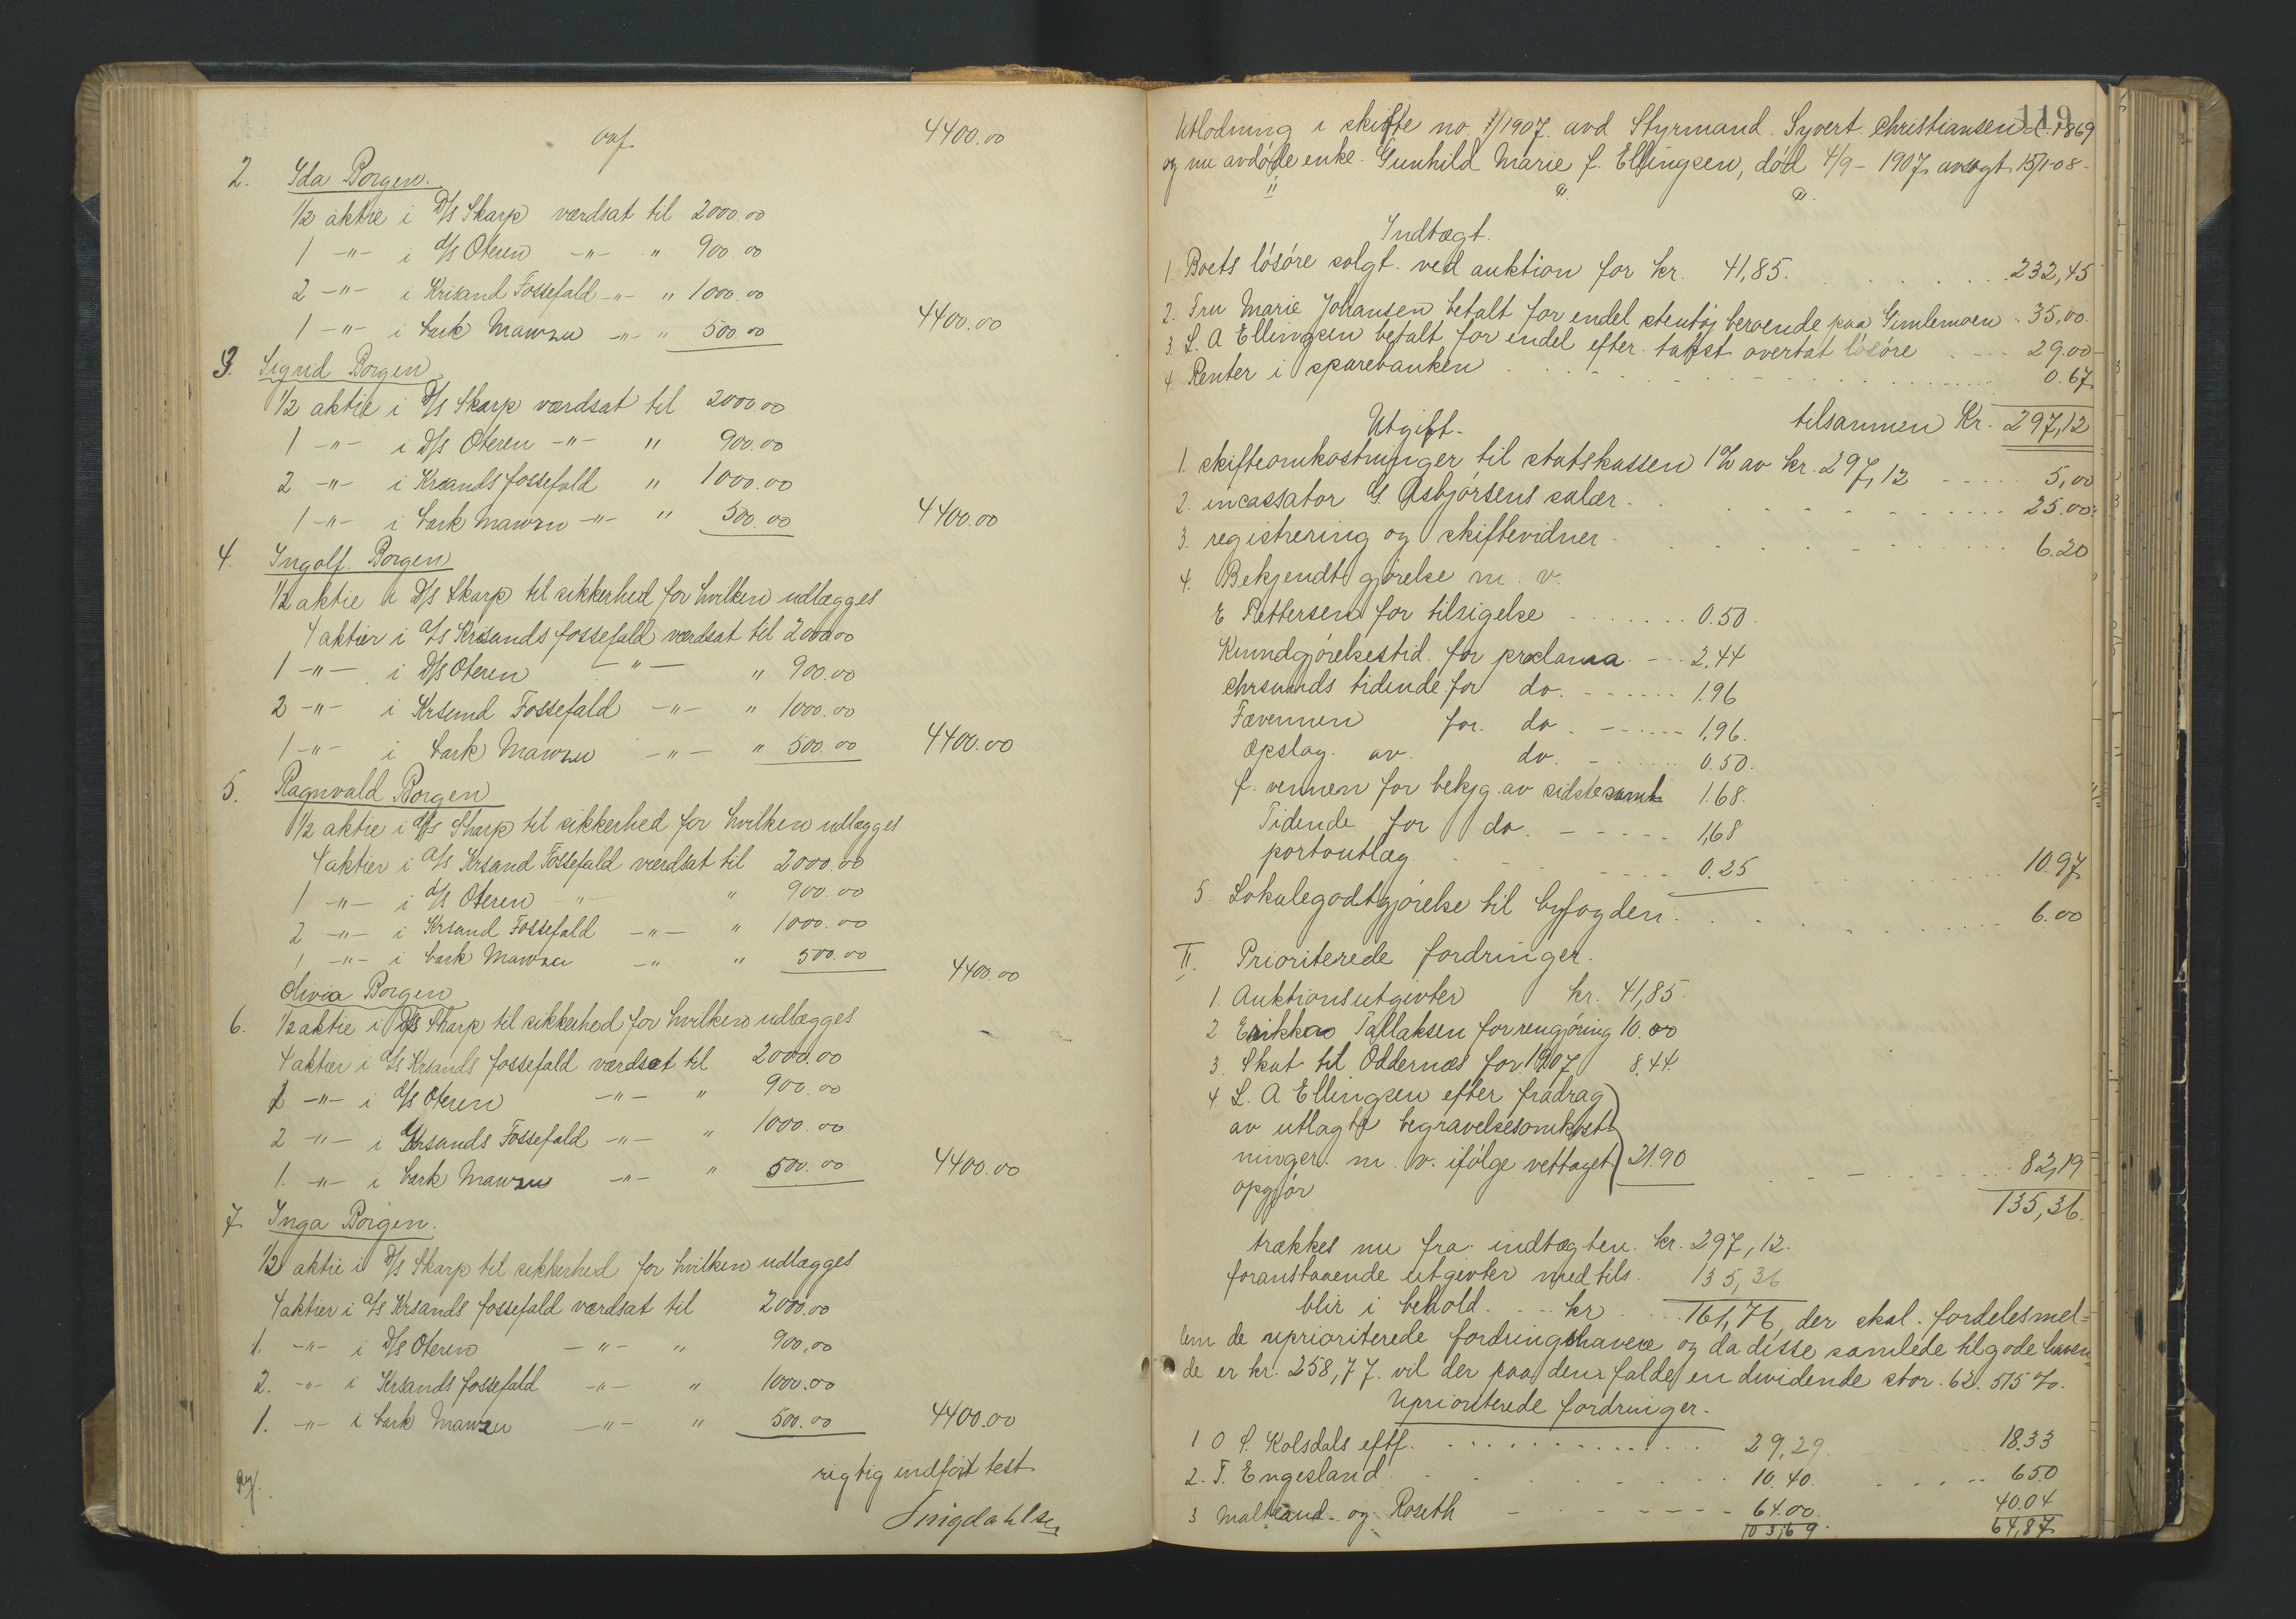 ovf. 4400.00
2. Ida Borgen.
1/2 aktie i D/S Skarp værdsat til 2000.00
1 -"- i d/s Oteren -"- " 900.00
2 -"- i Krisand Fossefald -"- " 1000.00
1 -"- i bark Mawzu -"- " 500.00 4400.00
3. Sigrid Borgen
1/2 aktie i D/S Skarp værdsat til 2000.00
1 -"- i D/S Oteren -"- " 900.00
2 -"- i Krsands fossefald " 1000.00
1 -"- i bark Mawzu -"- " 500.00 4400.00
4. Ingolf Borgen
1/2 aktie i D/S Skarp til sikkerhed for hvilken udlægges
4 aktier i a/s Krisands fossefald værdsat til 2000.00
1 -"- i D/S Oteren -"- " 900.00
2 -"- i Krsand Fossefald -"- " 1000.00
1 -"- i bark Mawzu -"- " 500.00 4400.00
5. Ragnvald Borgen
1/2 aktie i d/s Skarp til sikkerhed for hvilken udlægges
4 aktier i a/s Krsand Fossefald værdsat til 2000.00
1 -"- i d/s Oteren -"- " 900.00
2 -"- i Krsand Fossefald -"- " 1000.00
1 -"- i bark Mawzu -"- " 500.00 4400.00
Olivia Borgen
6. 1/2 aktie i D/S Skarp til sikkerhed for hvilken udlægges
4 aktier i a/s Krsands fossefald værdsat til 2000.00
1 -"- i d/s Oteren -"- " 900.00
2 -"- i Krsands Fossefald -"- " 1000.00
1. -"- i bark Mawzu -"- " 500.00 4400.00
7. Inga Borgen.
1/2 aktie i D/S Skarp til sikkerhed for hvilken udlægges
4 aktier i a/s Krsands fossefald værdsat til 2000.00
1. -"- i D/S Oteren -"- " 900.00
2. -"- i Krsands fossefald -"- " 1000.00
1. -"- i bark Mawzu -"- " 500.00 4400.00
rigtig indført test
119
Utlodning i skifte no. 7/1907 avd Styrmand Syvert Christiansen d. 1869
og nu avdøde enke Gunhild Marie f. Ellingsen, død 4/9-1907, avsagt 15/1-08-
Indtægt.
1. Boets løsøre solgt ved auktion for kr. 41,85. 232,45
2. Fru Marie Johansen betalt for endel stentøj beroende paa Gimlemoen 35,00
3. L. A Ellingsen betalt for endel efter takst overtat løsøre 29.00
4. Renter i sparebanken 0.67
tilsammen Kr. 297,12
Utgift.
1. skifteomkostninger til statskassen 1% av kr. 297,12 5,00
2. incassator G. Asbjørsens salær. 25.00
3. registrering og skiftevidner 6.20
4. Bekjendtgjørelse m. v.
E Pettersen for tilsigelse 0.50.
Kunndgjørelsestid. for proclama 2,44
Chrsunds tidende for do. 1.96
Fævennen for. do 1,96.
Opslag av. do. 0.50.
f. vennen for bekjg. av sidste saml. 1.68.
Tidende for do. 1,68
portoutlæg 0.25 10.97
5. Lokalegodtgjørelse til byfogden. 6.00
II. Prioriterede fordringer.
1. Auktionsutgivter kr. 41,85.
2 Erikka Tallaksen for rengjøring 10.00
3. Skat til Oddernæs for 1907 8.44
4. L. A Ellingsen efter fradrag
av utlagte begravelsesomkost-
ninger. m. v. ifølge vettaget 21.90 82,19
opgjør 135,36.
trækkes nu fra indtægten kr. 297,12.
foranstaaende utgivter med tils. 135,36
blir i behold kr 161,76, der skal fordeles mel=
lem de uprioriterede fordringshavere og da disse samlede tilgodehaven=
de er kr. 258,77. vil der paa dem falde en dividende stor. 62.515 %.
Uprioriterede fordringer.
1 O. S. Kolsdals eftf. 29,29. 18.33
2. T. Engesland 10.40. 6.50
3 Maltrand og Roseth 64.00 40.04
103,69. 64,87